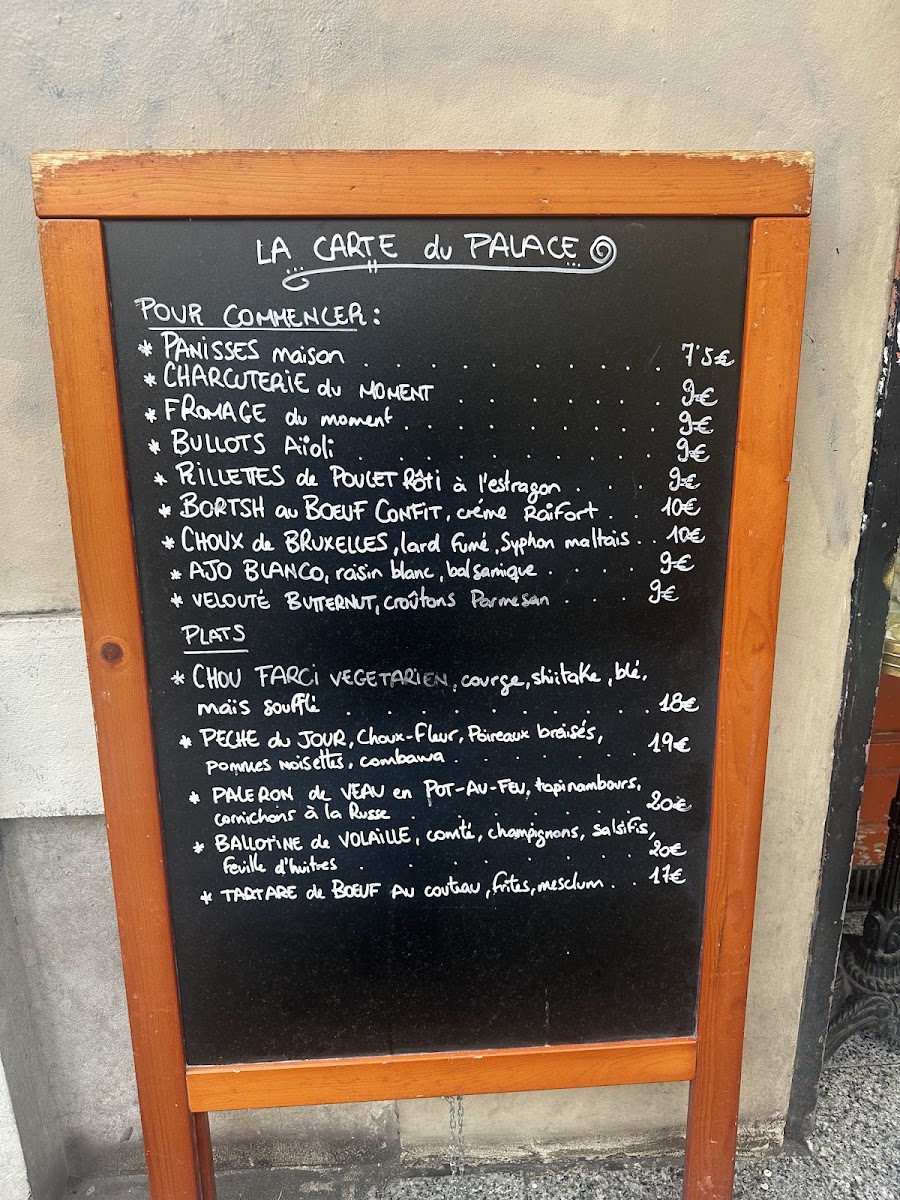 LA CARTE du PALACE
POUR COMMENCER :
* PANISSES maison . . . . . . . . . . . 7'5€
* CHARCUTERIE du MOMENT . . . . . . . . 9€
* FROMAGE du moment . . . . . . . . . . 9€
* BULLOTS Aïoli . . . . . . . . . . . 9€
* RILLETTES de POULET Rôti à l'estragon . . . 9€
* BORTSH au BOEUF CONFIT, crème Raifort . . 10€
* CHOUX de BRUXELLES, lard fumé, Syphon maltais . . 10€
* AJO BLANCO, raisin blanc, balsamique . . . . . 9€
* VELOUTÉ BUTTERNUT, croûtons Parmesan . . . . 9€
PLATS
* CHOU FARCI VEGETARIEN, courge, shiitake, blé,
maïs soufflé . . . . . . . . . . . 18€
* PECHE du JOUR, Choux-Fleur, Poireaux braisés,
pommes noisettes, combawa . . . . . . . 19€
* PALERON de VEAU en POT-AU-FEU, topinambours,
cornichons à la Russe . . . . . . . . 20€
* BALLOTINE de VOLAILLE, comté, champignons, salsifis,
feuille d'huitres . . . . . . . . . 20€
* TARTARE de BOEUF AU couteau, frites, mesclum . . 17€